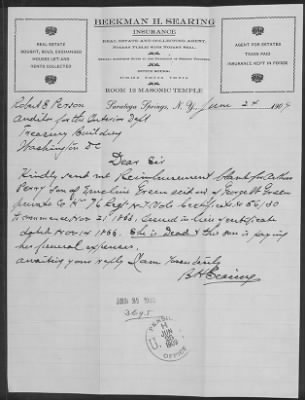 BEEKMAN H. SEARING
INSURANCE
REAL ESTATE AND COLLECTING AGENT,
NOTARY PUBLIC WITH NOTARIAL SEAL.
REAL ESTATE
BOUGHT, SOLD, EXCHANGED
HOUSES LET AND
RENTS COLLECTED
AGENT FOR ESTATES
TAXES PAID
INSURANCE KEPT IN FORCE
OFFICE HOURS
ROOM 12 MASONIC TEMPLE
Saratoga Springs, N.Y. June 24 1909
Robert S Person
Auditor for the Interior Dept
Treasury Building
Washington DC
Dear Sir
Kindly send out Reimbursement blank for Arthur
Perry son of Emeline Green widow of George W Green
private Co K 76 Regt N.Y. Vols Certificate # 86,130
Commence Nov 21st 1863. Issued in lieu certificate
dated Nov 14 1866. She is Dead & the son is paying
her funeral expenses.
awaiting your reply I am Yours truly
B H Searing
JUN 24 1909
U.S. PENSION
OFFICE
JUN
1909